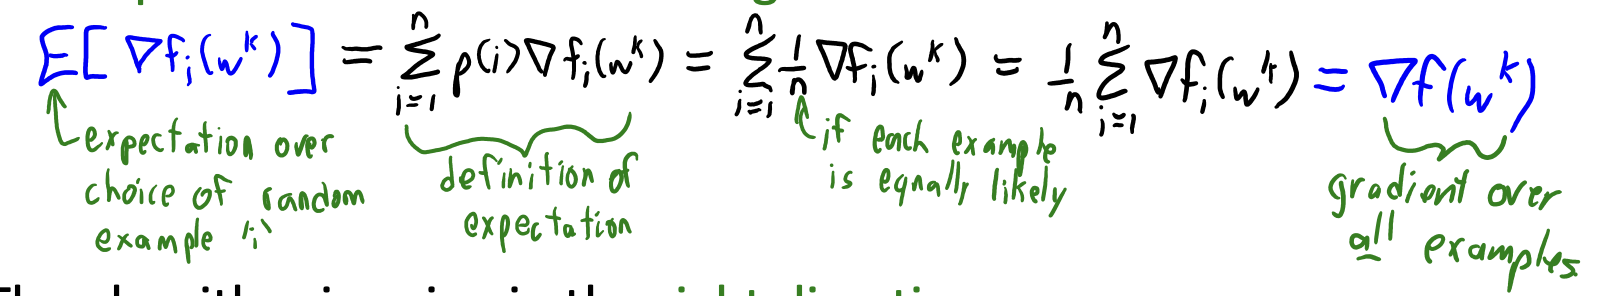 E[∇f_i(w^k)] = Σ_{i=1}^{n} p(i)∇f_i(w^k) = Σ_{i=1}^{n} 1/n ∇f_i(w^k) = 1/n Σ_{i=1}^{n} ∇f_i(w^k) = ∇f(w^k)
expectation over
choice of random
example 'i'
definition of
expectation
if each example
is equally likely
gradient over
all examples